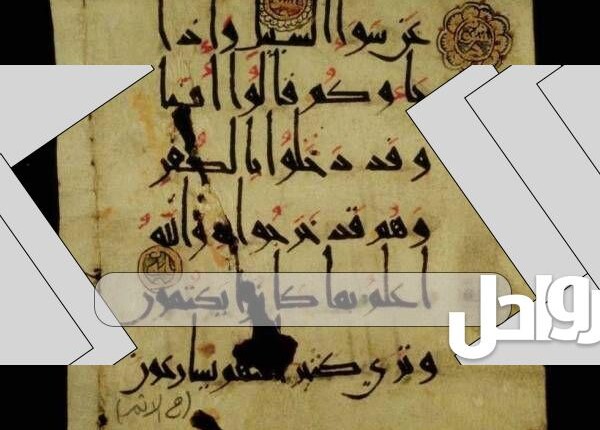 عن سواء السبيل وإذا
جاءوكم قالوا آمنا
وقد دخلوا بالكفر
وهم قد خرجوا به والله
أعلم بما كانوا يكتمون
وترى كثيرا منهم يسارعون
رواحل